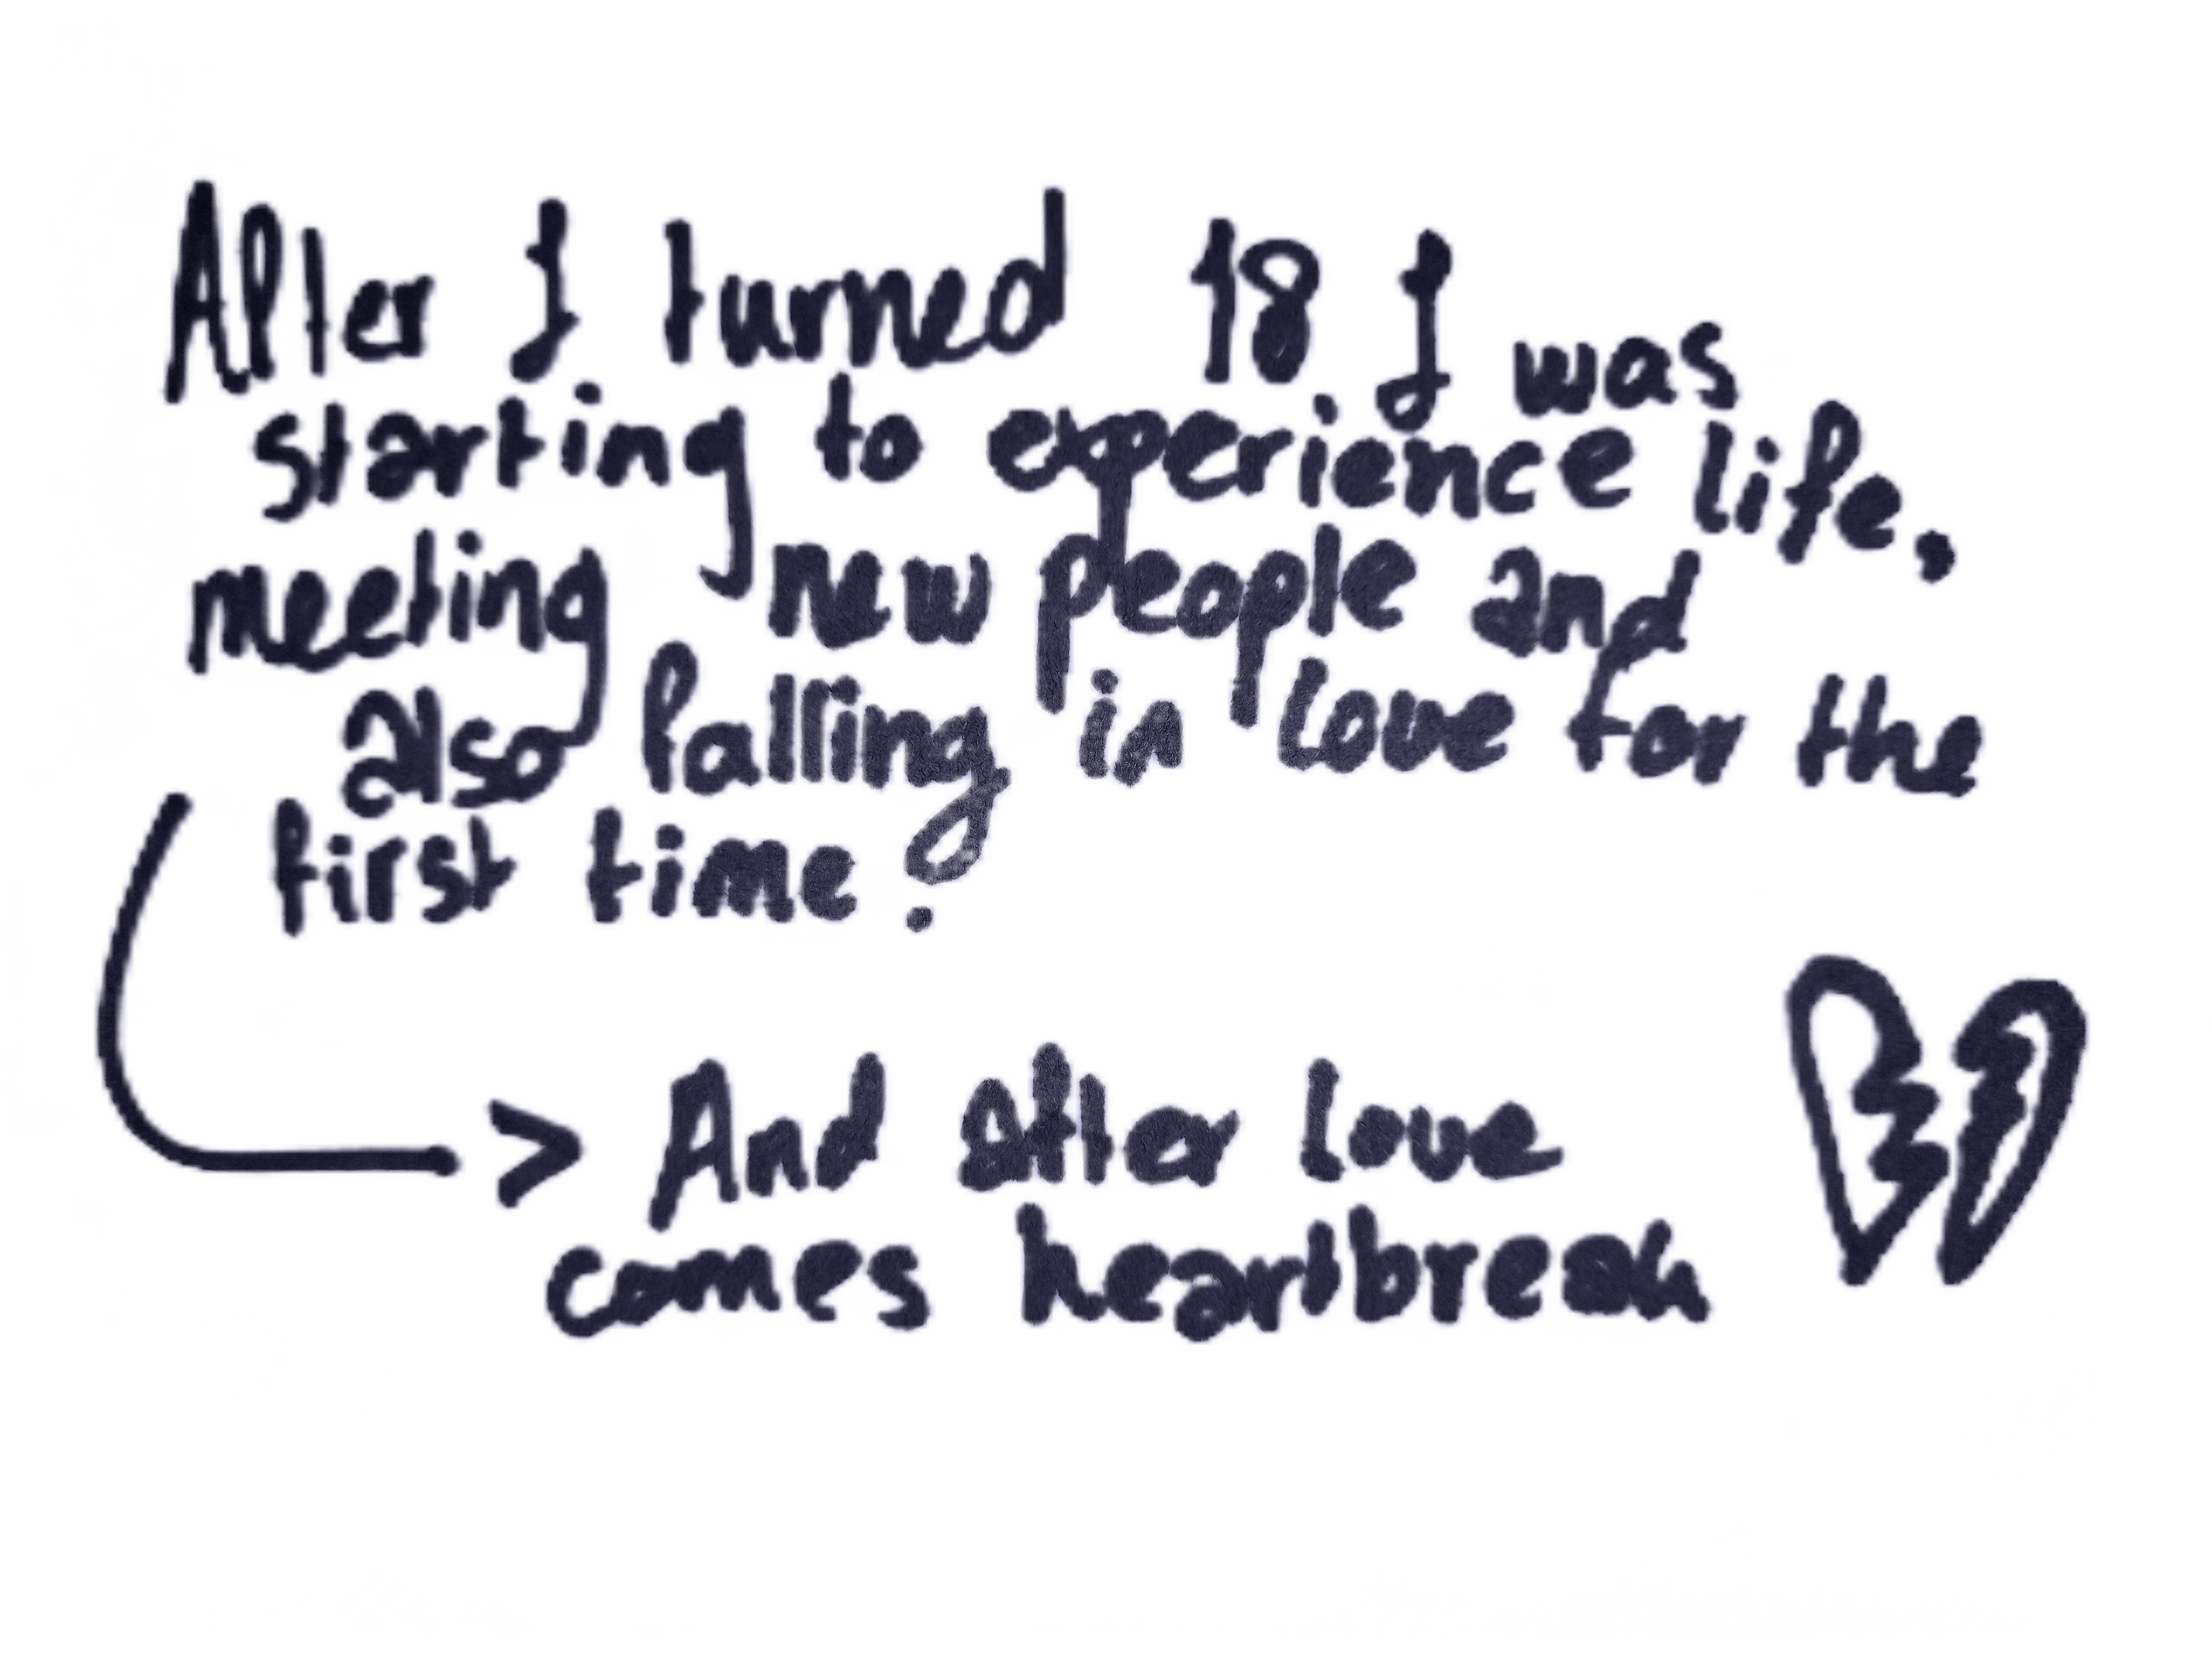 After I turned 18 I was
starting to experience life,
meeting new people and
also falling in love for the
first time!
And after love
comes heartbreak